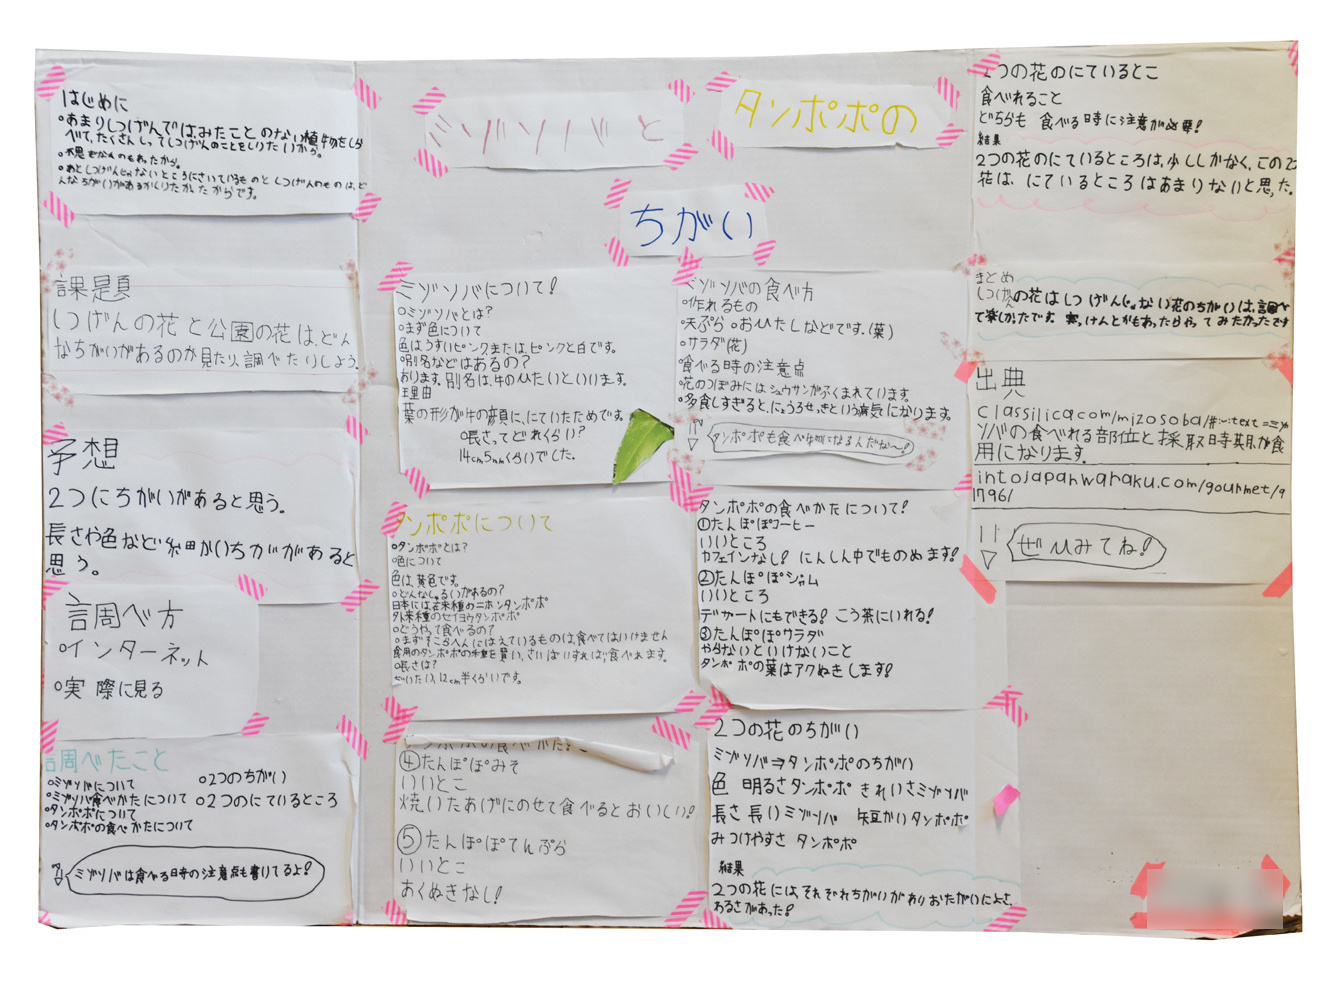 ミゾソバと
タンポポの
ちがい
はじめに
○あまりしつげんではみたことのない植物をしら
べて、たくさんしってしつげんのことをしりたいから。
○不思ぎなんのもあったから。
○あとしつげんじゃないところにさいているものとしつげんのものは、ど
んなちがいがあるかしりたかったからです。
課題
しつげんの花と公園の花は、どん
なちがいがあるのか見たり、調べたりしよう。
予想
2つにちがいがあると思う。
長さや色など細かいちがいがあると
思う。
調べ方
○インターネット
○実際に見る
調べたこと
○ミゾソバについて
○ミゾソバ食べかたについて
○タンポポについて
○タンポポの食べかたについて
○2つのちがい
○2つのにているところ
ミゾソバは食べる時の注意点も書いてるよ!
ミゾソバについて!
○ミゾソバとは?
○まず色について
色はうすいピンクまたは、ピンクと白です。
○別名などはあるの?
あります。別名は、牛のひたいといいます。
理由
葉の形が牛の顔に、にていたためです。
○長さってどれくらい?
14cm5mmくらいでした。
タンポポについて
○タンポポとは?
○色について
色は、黄色です。
○どんなしゅるいがあるの?
日本には在来種のニホンタンポポ
外来種のセイヨウタンポポ
○どうやって食べるの?
○まずそこらへんにはえているものは、食べてはいけません
食用のタンポポの種を買い、さいばいすれば食べれます。
○長さは?
ぜいたい、12cm半くらいです。
④たんぽぽみそ
いいとこ
焼いたあげにのせて食べるとおいしい!
⑤たんぽぽてんぷら
いいとこ
あくぬきなし!
ミゾソバの食べ方
○作れるもの
○天ぷら○おひたしなどです。(葉)
○サラダ(花)
○食べる時の注意点
○花のつぼみにはシュウサンがふくまれています。
○多食しすぎると、にょうろせっきという病気になります。
タンポポも食べ物になるんだな〜!
タンポポの食べかたについて!
①たんぽぽコーヒー
いいところ
カフェインなし! にんしん中でものめます!
②たんぽぽジャム
いいところ
デザートにもできる! こう茶にいれる!
③たんぽぽサラダ
やらないといけないこと
タンポポの葉はアクぬきします!
2つの花のちがい
ミゾソバ⇒タンポポのちがい
色 明るさタンポポ きれいさミゾソバ
長さ 長いミゾソバ 短かいタンポポ
みつけやすさ タンポポ
結果
2つの花には、それぞれちがいがありおたがいによさ、
わるさがあった!
2つの花のにているとこ
食べれること
どちらも 食べる時に注意が必要!
結果
2つの花のにているところは、少ししかなく、この2つ
花は、にているところはあまりないと思った。
まとめ
しつげんの花はしつげんじゃない花のちがいは、調べ
て楽しかったです。
出典
classilica.com/mizosoba/#:~:text=ミゾ
ソバの食べれる部位と採取時期,が食
用になります。
intojapanwaraku.com/gourmet/9
1796/
ぜひみてね!